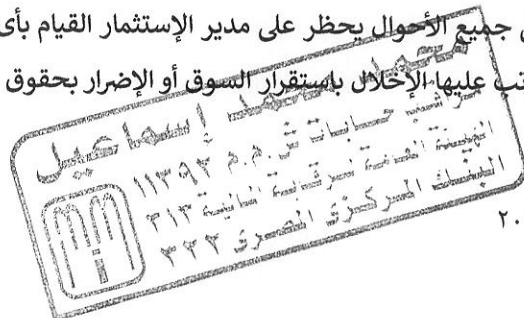 جميع الأحوال يحظر على مدير الإستثمار القيام بأى
تب عليها الإخلال باستقرار السوق أو الإضرار بحقوق
محمد محمد إسماعيل
حسابات س.م.م ١١٣٩٢
الهيئة العامة للرقابة المالية ٢١٣
البنك المركزى المصرى ٢٢٢
٢٠